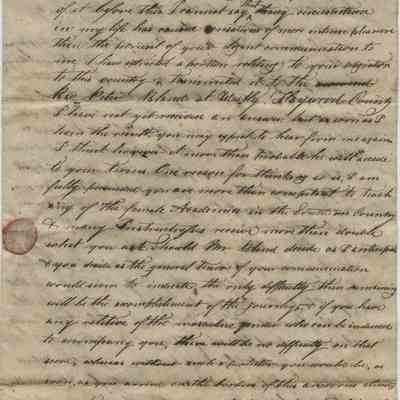 of it before this I cannot say that any circumstance
in my life has caused sensations of more intense pleasure
than the perusal of your elegant communication to
me. I have a position relating to your migration
to this country & transmitted it to the
Revd Peter Bland at Wesley Haywood County
I have not yet received an answer but as soon as I
learn the result you may expect to hear from me again
I think however it more than probable he will accede
to your terms. One reason for thinking so is, I am
fully persuaded you are more than competent to teach
any of the female Academies in the Southern Country
& many Instructresses receive more than double
what you ask. Should Mr Bland decide as I anticipate
& you decide as the general tenor of your communication
would seem to indicate, the only difficulty then remaining
will be the accomplishment of the journey, & if you have
any relative of the masculine gender who can be induced
to accompany you, there will be no difficulty on that
score, whereas without such a protector you would be, as
soon, as you arrive on the borders of this